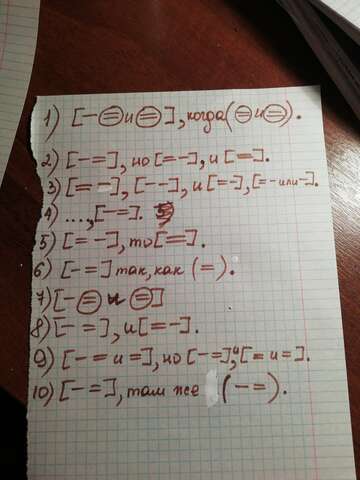 1) [- ⊜ и ⊜], когда (⊜ и ⊜).
2) [- =], но [= -], и [=].
3) [= -], [- -], и [= -], [= - или -].
4) ..., [- =].
5) [= -], то [=].
6) [- =] так, как (=).
7) [- ⊜ и ⊜]
8) [- =], и [= -].
9) [- = и =], но [- =], и [= и =].
10) [- =], там же (- =).